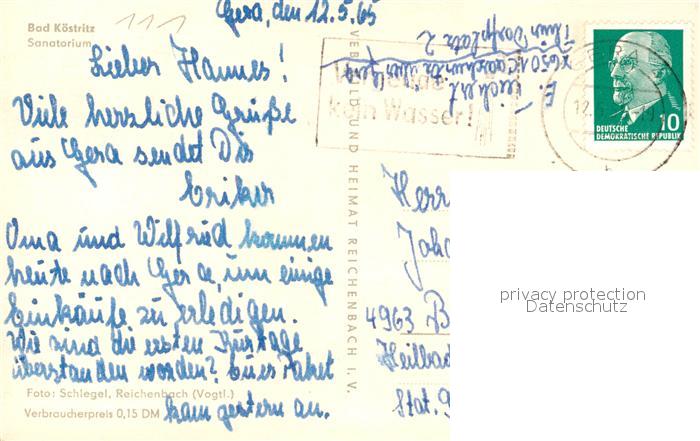 Bad Köstritz
Sanatorium
111
Gera, den 12.5.65
Lieber Hannes!
Viele herzliche Grüße
aus Gera sendet Dir
Erika
Oma und Wilfried kommen
heute nach Gera, um einige
Einkäufe zu erledigen.
Wie sind die ersten Kurtage
überstanden worden? Eures Paket
kam gestern an.
Foto: Schlegel, Reichenbach (Vogtl.)
Verbraucherpreis 0,15 DM
VEB BILD UND HEIMAT REICHENBACH I. V.
E. Teichert
X 6501
Thür Dorfplatz 2
kein Wasser!
GERA
12.
DEUTSCHE
DEMOKRATISCHE REPUBLIK
10
Herr
Joha
4963 B
Heilbad
Stat. 9
privacy protection
Datenschutz